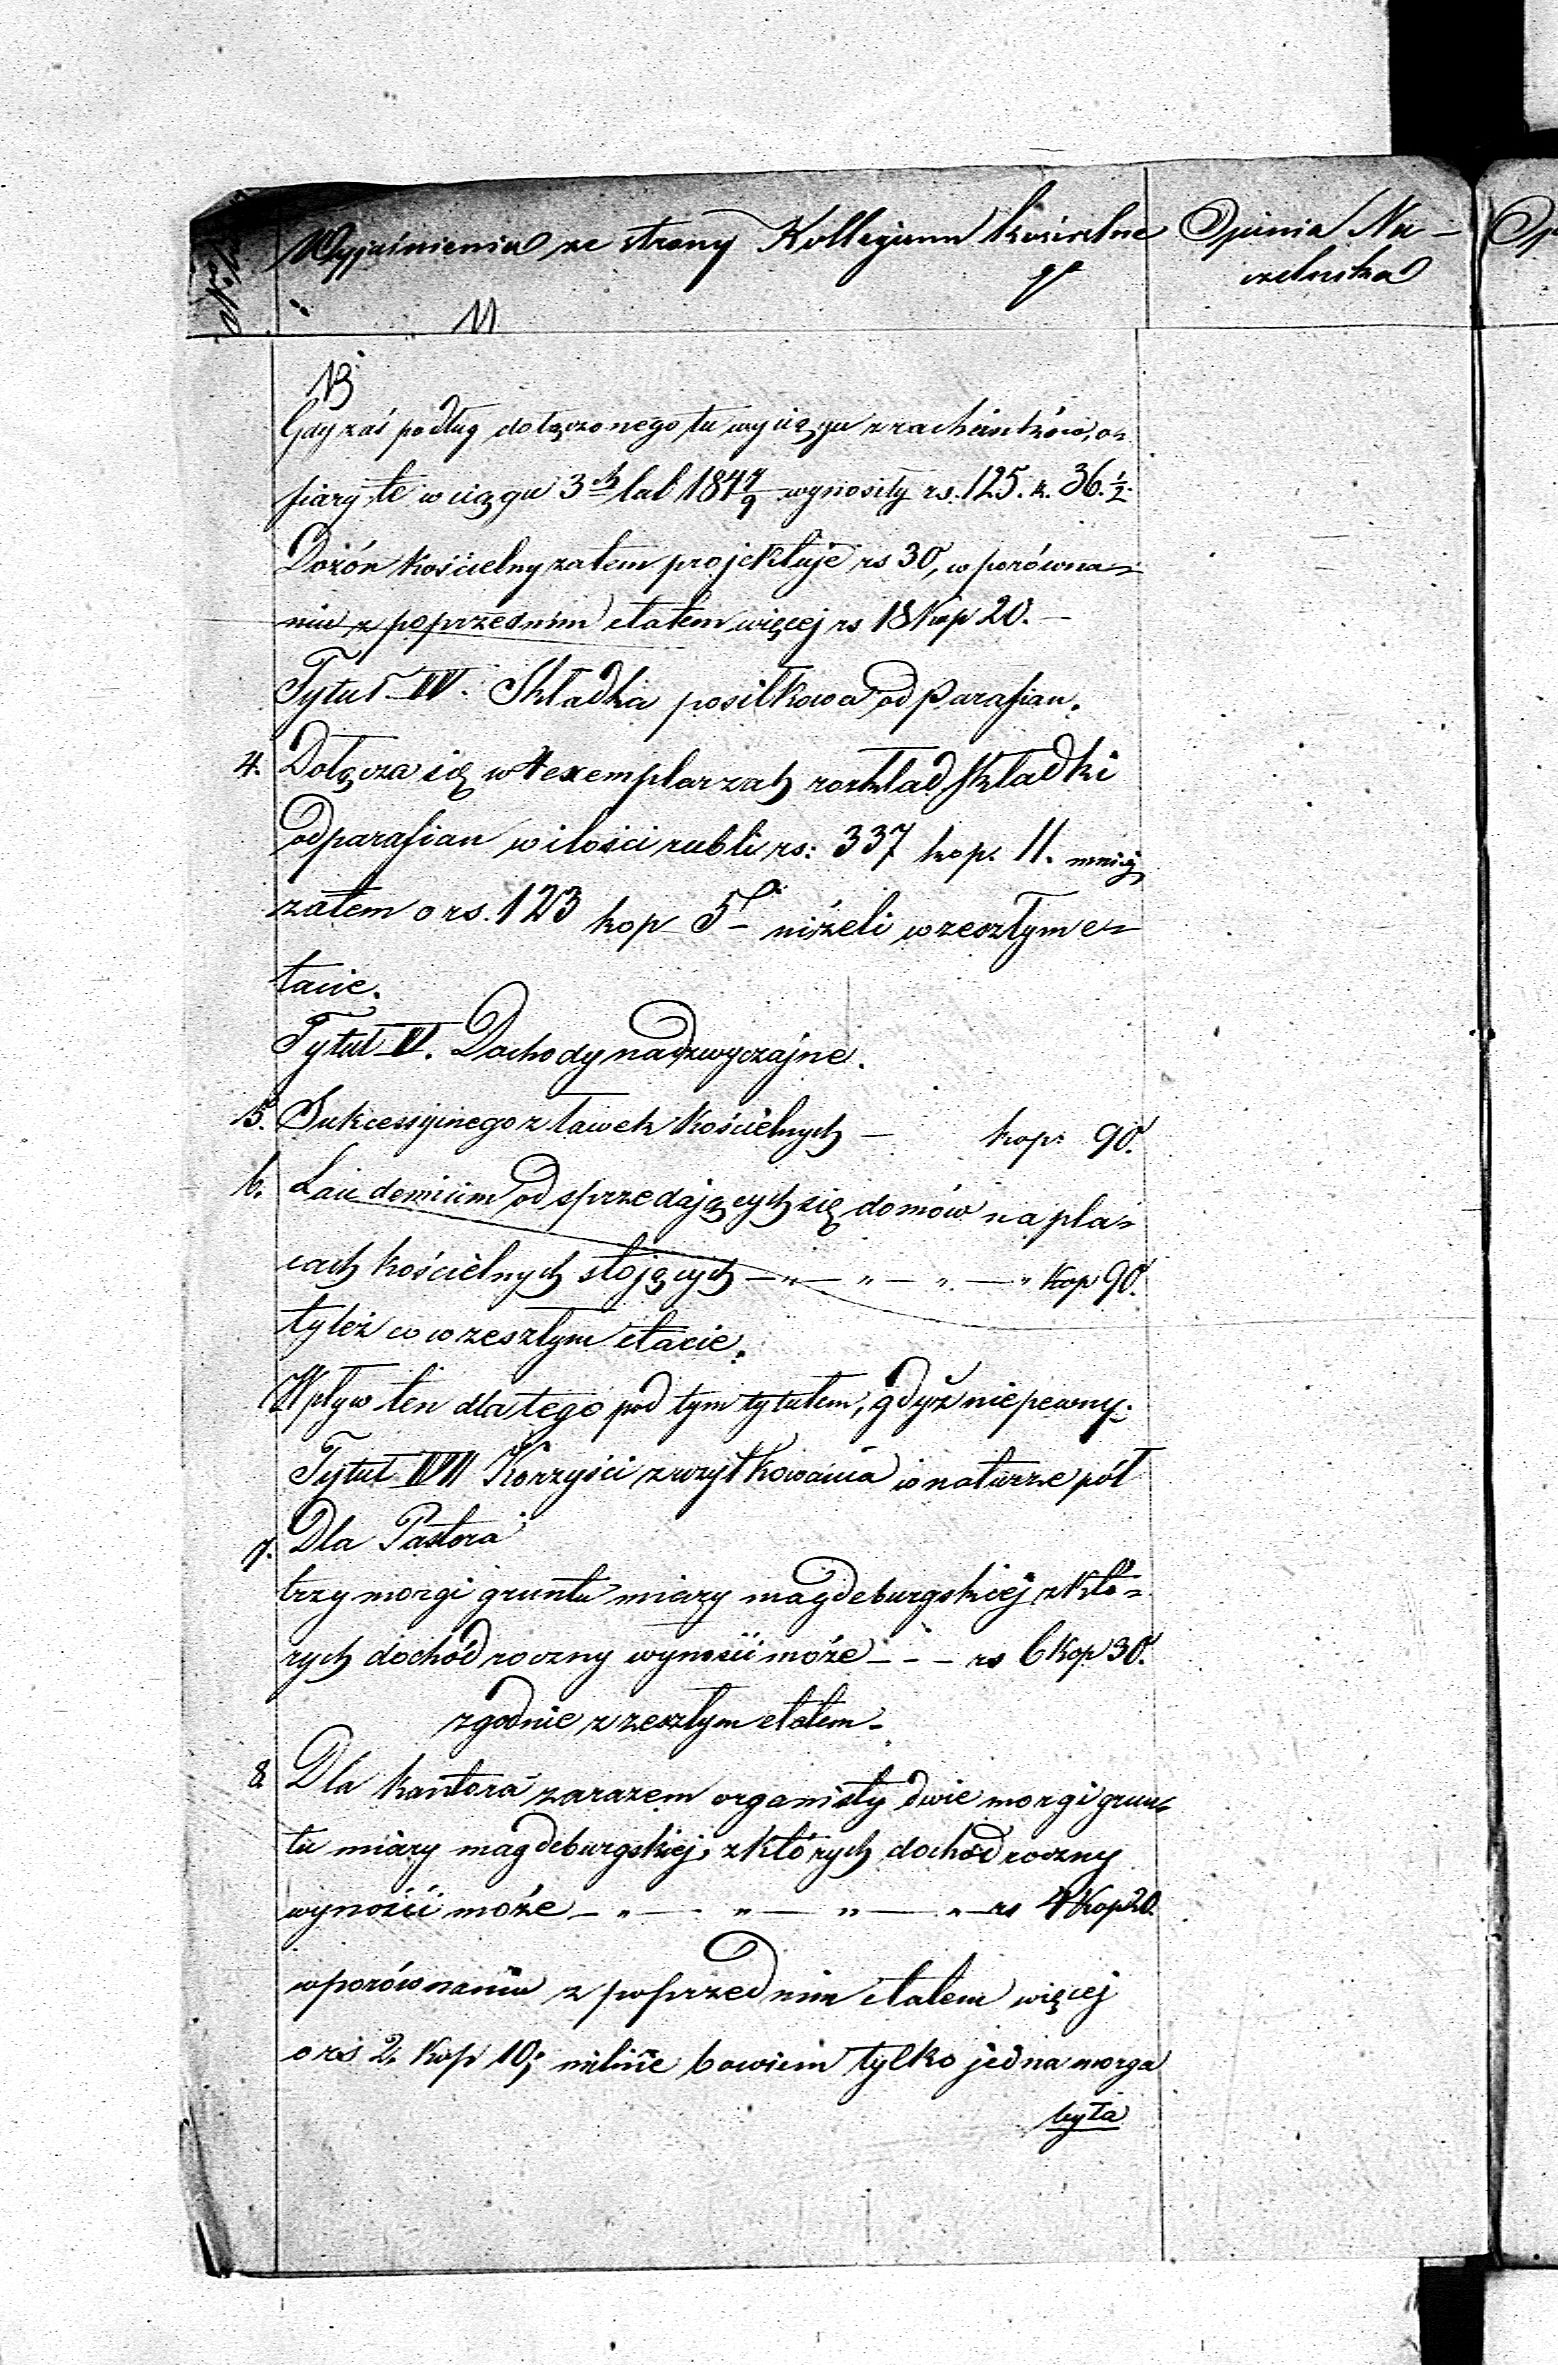 Wyjaśnienia ze strony Kollegium kościelne
go
Opinia Na-
czelnika
11
13
Gdy zaś podług dołączonego tu wyciągu z rachunków, o=
fiary te w ciągu 3ch lat 1847/9 wynosiły rs. 125. k. 36. ½
Dozór kościelny zatem projektuje rs 30, w porówna=
niu z poprzednim etatem więcej rs 18 kop 20. —
Tytuł IV. Składka posiłkowa od Parafian.
4. Dołącza się w 4 exemplarzach rozkład składki
od parafian w ilości rubli rs: 337 kop. 11. mniej
zatem o rs. 123 kop 5 — niżeli w zeszłym e=
tacie.
Tytuł V. Dochody nadzwyczajne.
5. Sukcessyjnego z ławek kościelnych — kop: 90.
6. Laudemium od sprzedających się domów na pla=
cach kościelnych stojących — „ — „ — „ — „ kop 90.
tyleż co w zeszłym etacie.
Wpływ ten dla tego pod tym tytułem, gdyż niepewny.
Tytuł VII Korzyści z użytkowania w naturze pól
7. Dla Pastora
trzy morgi gruntu miary magdeburgskiej z któ=
rych dochód roczny wynosić może - - - rs 6 kop 30.
zgodnie z zeszłym etatem.
8. Dla kantora zarazem organisty dwie morgi grun=
tu miary magdeburgskiej, z których dochód roczny
wynosić może — „ — „ — „ — „ — rs 4 kop 20.
w porównaniu z poprzednim etatem więcej
o rs 2. kop 10; bowiem tylko jedna morga
była